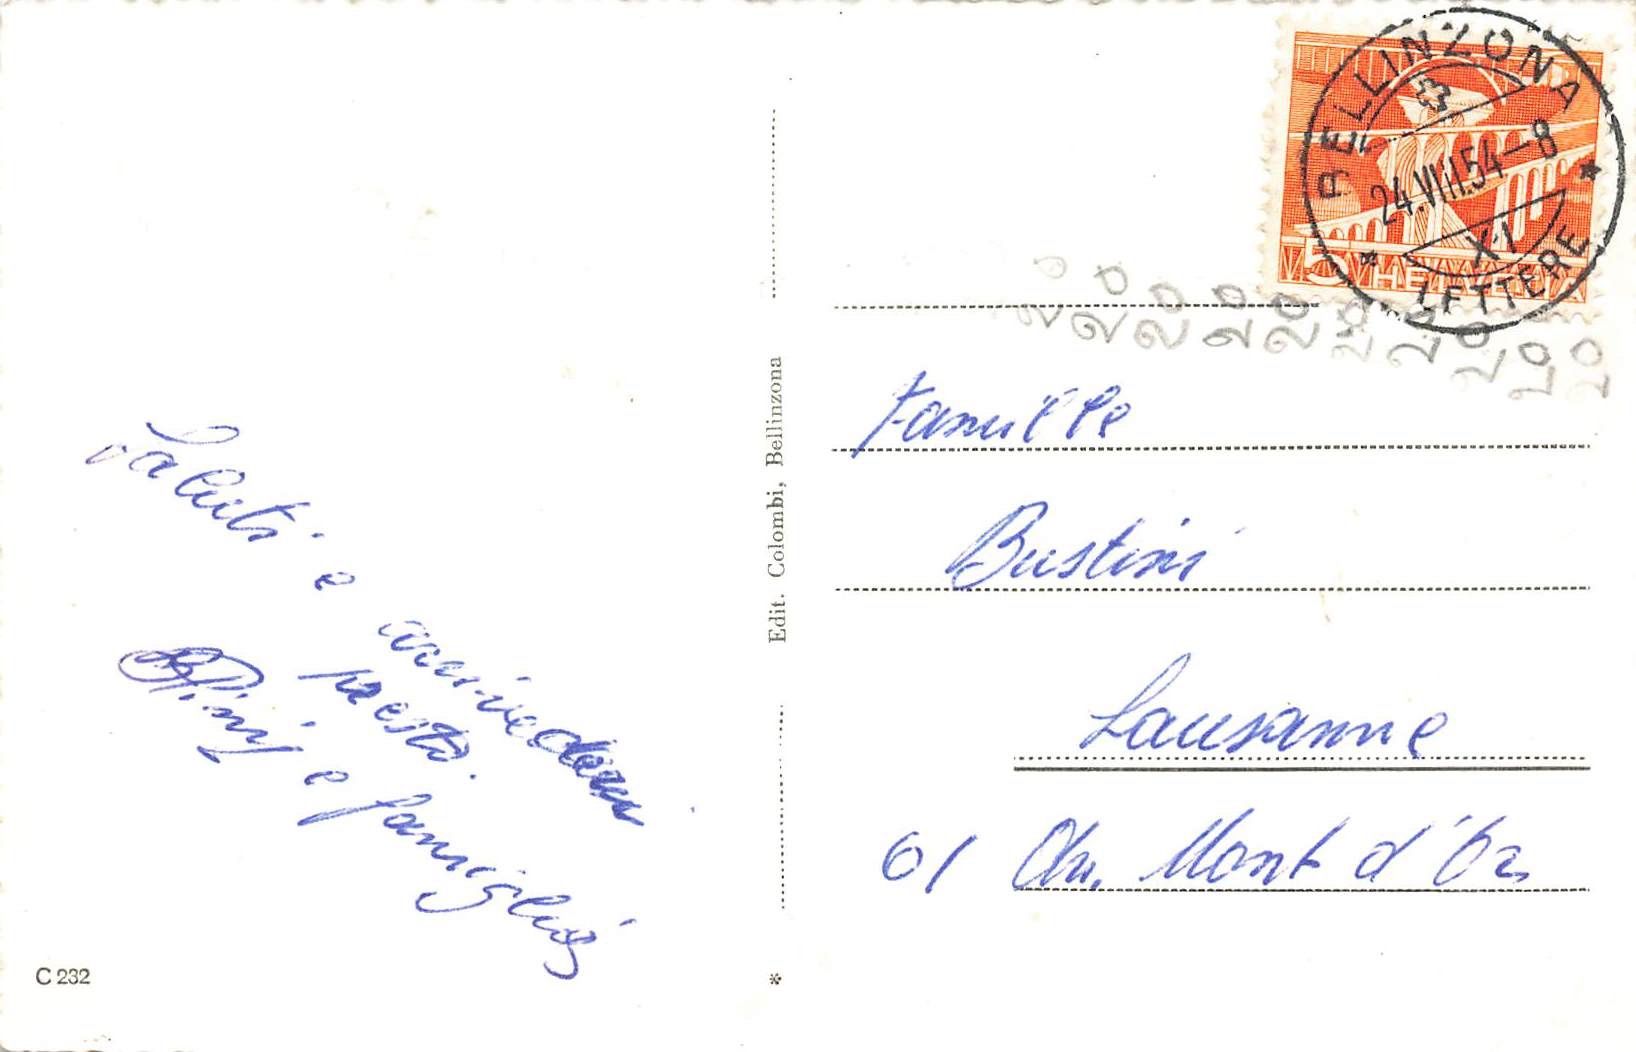 BELLINZONA
24.VIII.54–8
X·1
LETTERE
5 HELVETIA
Saluti e
arrivederci
presto.
Pini e famiglia
Famille
Bustini
Lausanne
61 Ch. Mont d'Or
Edit. Colombi, Bellinzona
C 232